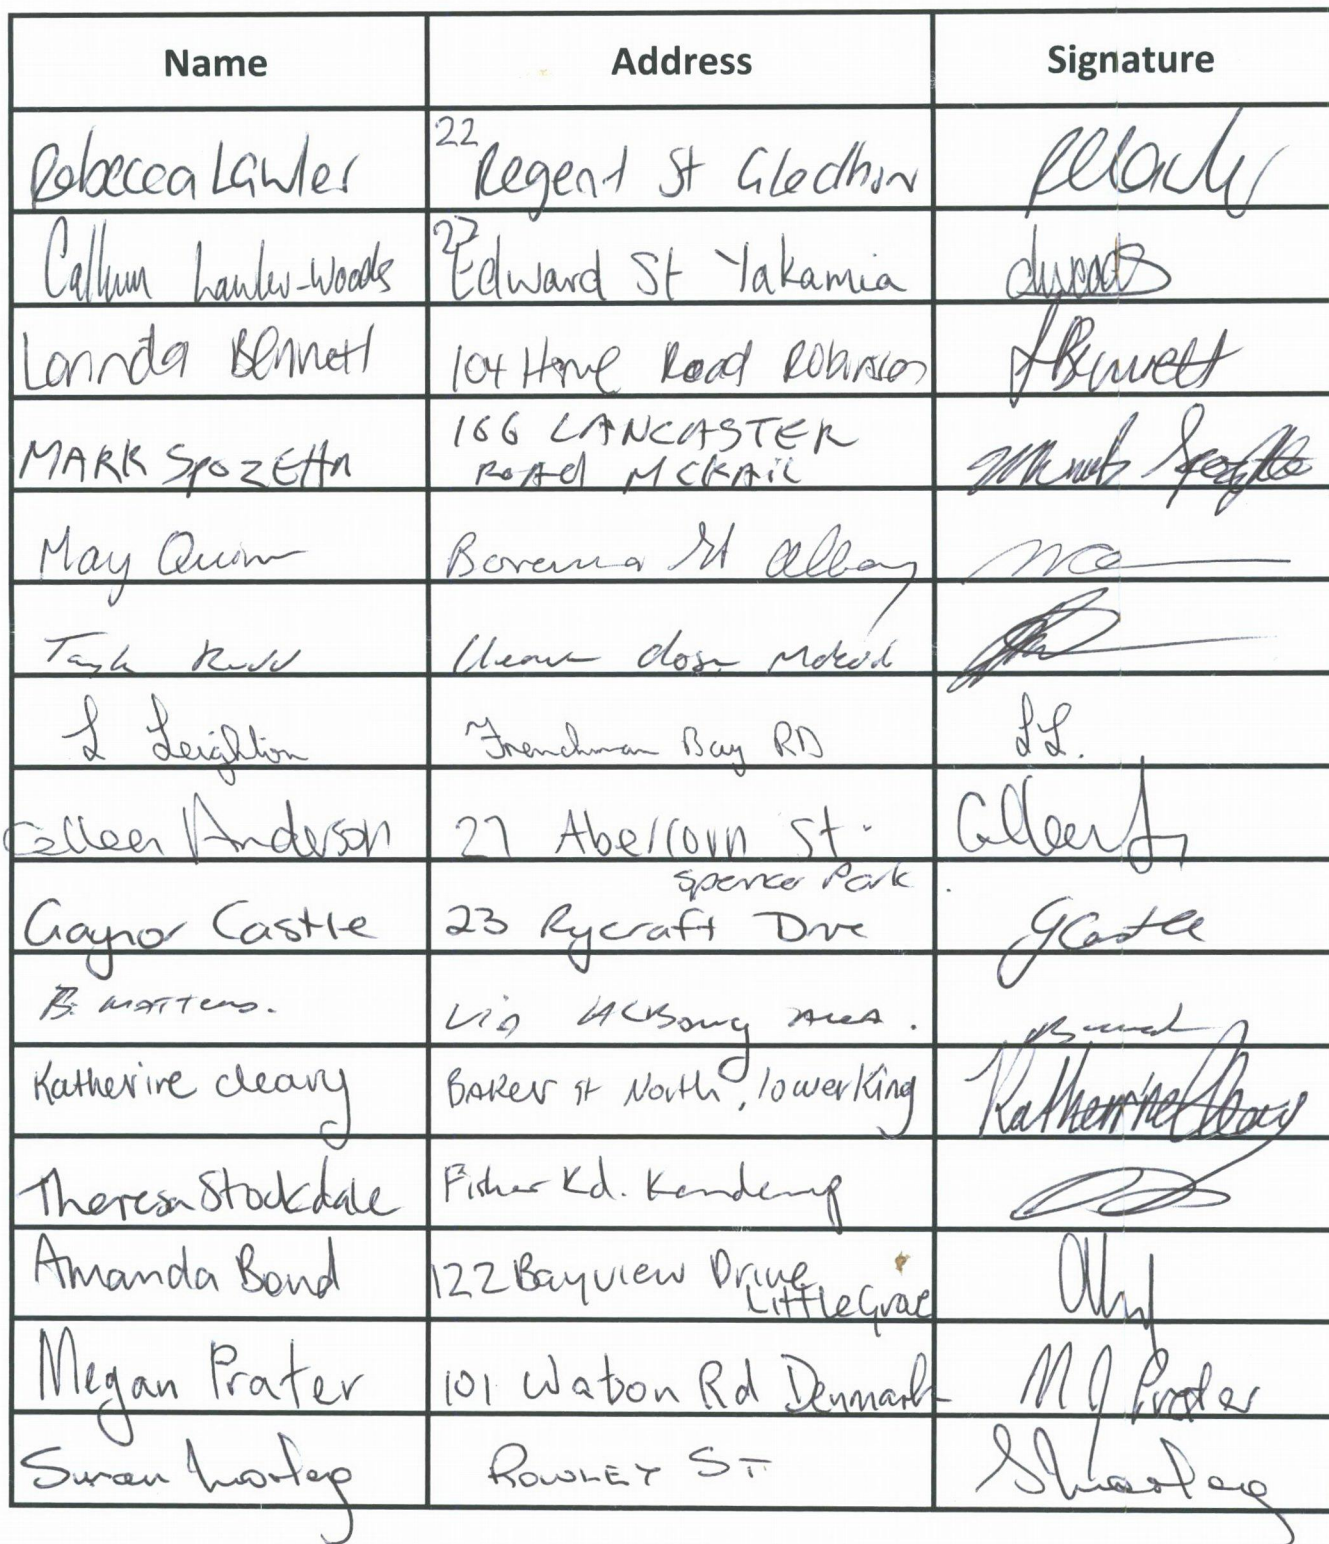 Name Address Signature
Rebecca Lawler 22 Regent St Gledhow
Callum Lawler-Woods 27 Edward St Yakamia dwoods
Lorinda Bennett 104 Home Road Robinson LBennett
MARK SPOZETTA 166 LANCASTER
ROAD MCKAIL Mark
May Quinn St Albany
Close McKail
L Leighton Frenchman Bay RD LL.
Colleen Anderson 27 Abercorn St. Colleen
Spencer Park
Gaynor Castle 23 Rycraft Drve GCastle
B. Martens. Via Area.
Katherine cleary Baker st North, lower King Katherine Cleary
Theresa Stockdale Fisher Rd. Kendenup
Amanda Bond 122 Bayview Drive
Little Grove
Megan Prater 101 Watson Rd Denmark M J Prater
Susan ROWLEY ST